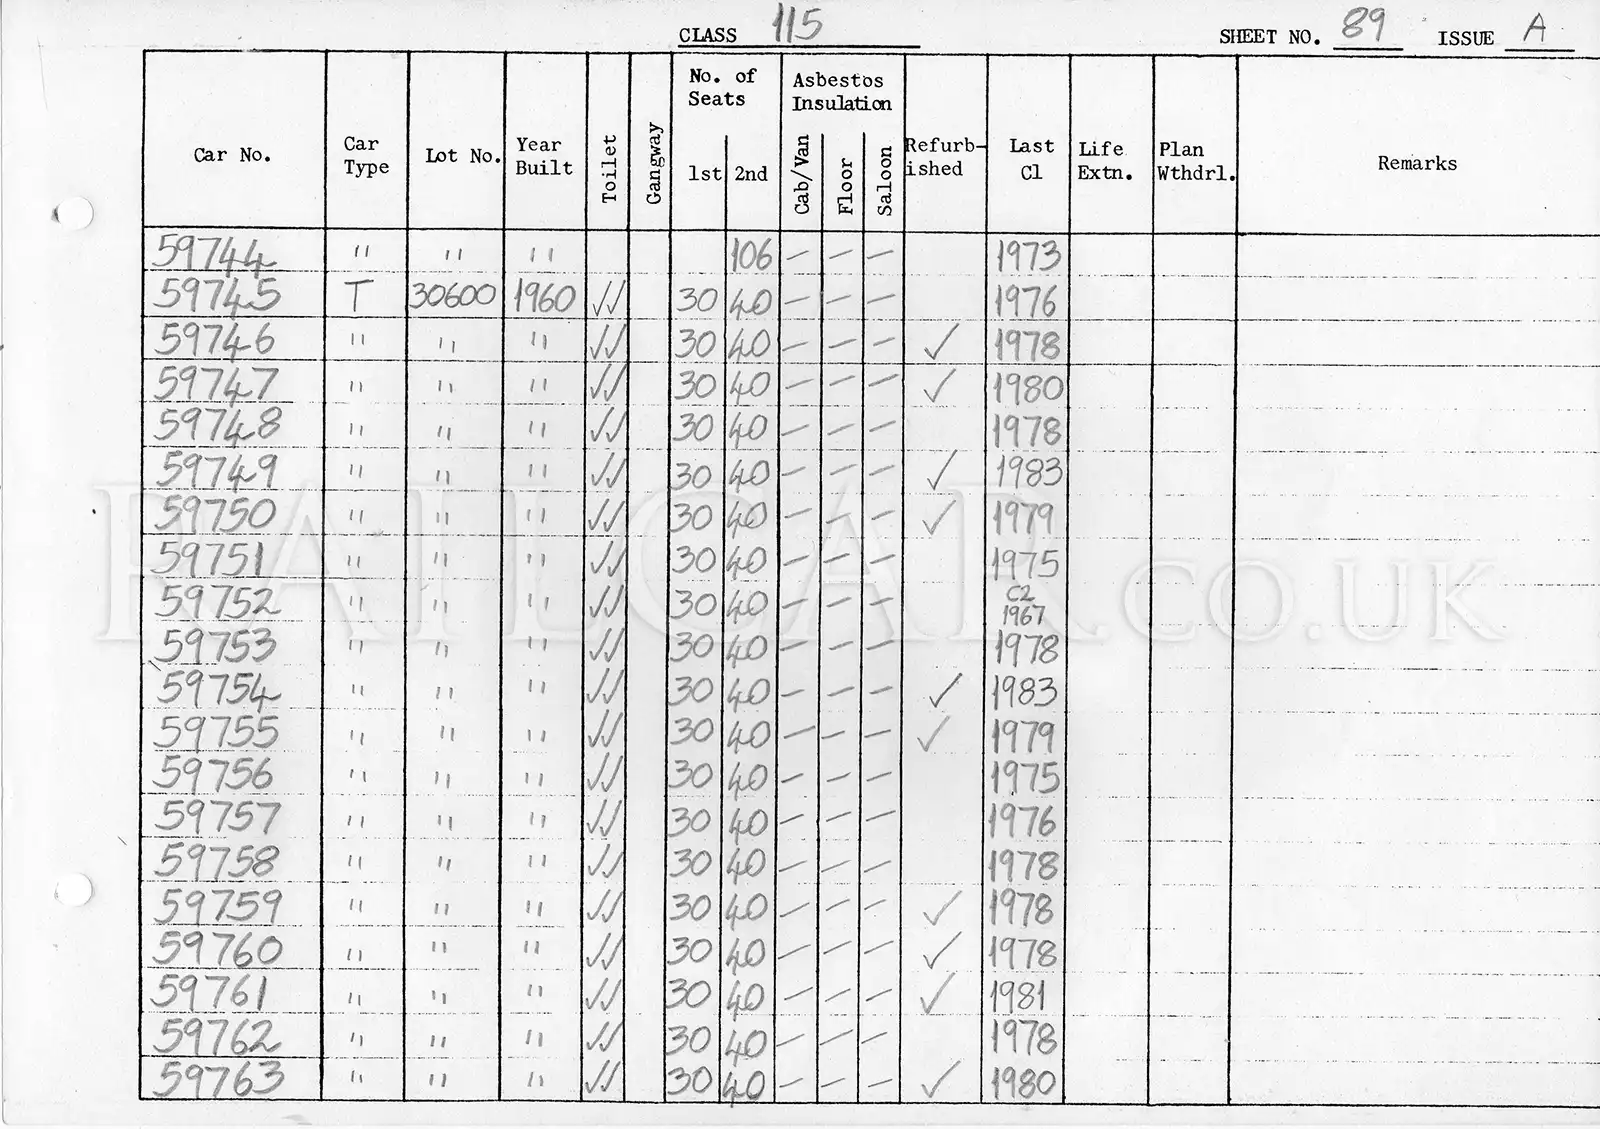 CLASS 115 SHEET NO. 89 ISSUE A
Car No. Car Type Lot No. Year Built Toilet Gangway No. of Seats 1st 2nd Asbestos Insulation Cab/Van Floor Saloon Refurb-ished Last Cl Life Extn. Plan Wthdrl. Remarks
59744 " " " 106 — — — 1973
59745 T 30600 1960 ✓✓ 30 40 — — — 1976
59746 " " " ✓✓ 30 40 — — — ✓ 1978
59747 " " " ✓✓ 30 40 — — — ✓ 1980
59748 " " " ✓✓ 30 40 — — — 1978
59749 " " " ✓✓ 30 40 — — — ✓ 1983
59750 " " " ✓✓ 30 40 — — — ✓ 1979
59751 " " " ✓✓ 30 40 — — — 1975
59752 " " " ✓✓ 30 40 — — — C2 1967
59753 " " " ✓✓ 30 40 — — — 1978
59754 " " " ✓✓ 30 40 — — — ✓ 1983
59755 " " " ✓✓ 30 40 — — — ✓ 1979
59756 " " " ✓✓ 30 40 — — — 1975
59757 " " " ✓✓ 30 40 — — — 1976
59758 " " " ✓✓ 30 40 — — — 1978
59759 " " " ✓✓ 30 40 — — — ✓ 1978
59760 " " " ✓✓ 30 40 — — — ✓ 1978
59761 " " " ✓✓ 30 40 — — — ✓ 1981
59762 " " " ✓✓ 30 40 — — — 1978
59763 " " " ✓✓ 30 40 — — — ✓ 1980
RAILCAR.CO.UK